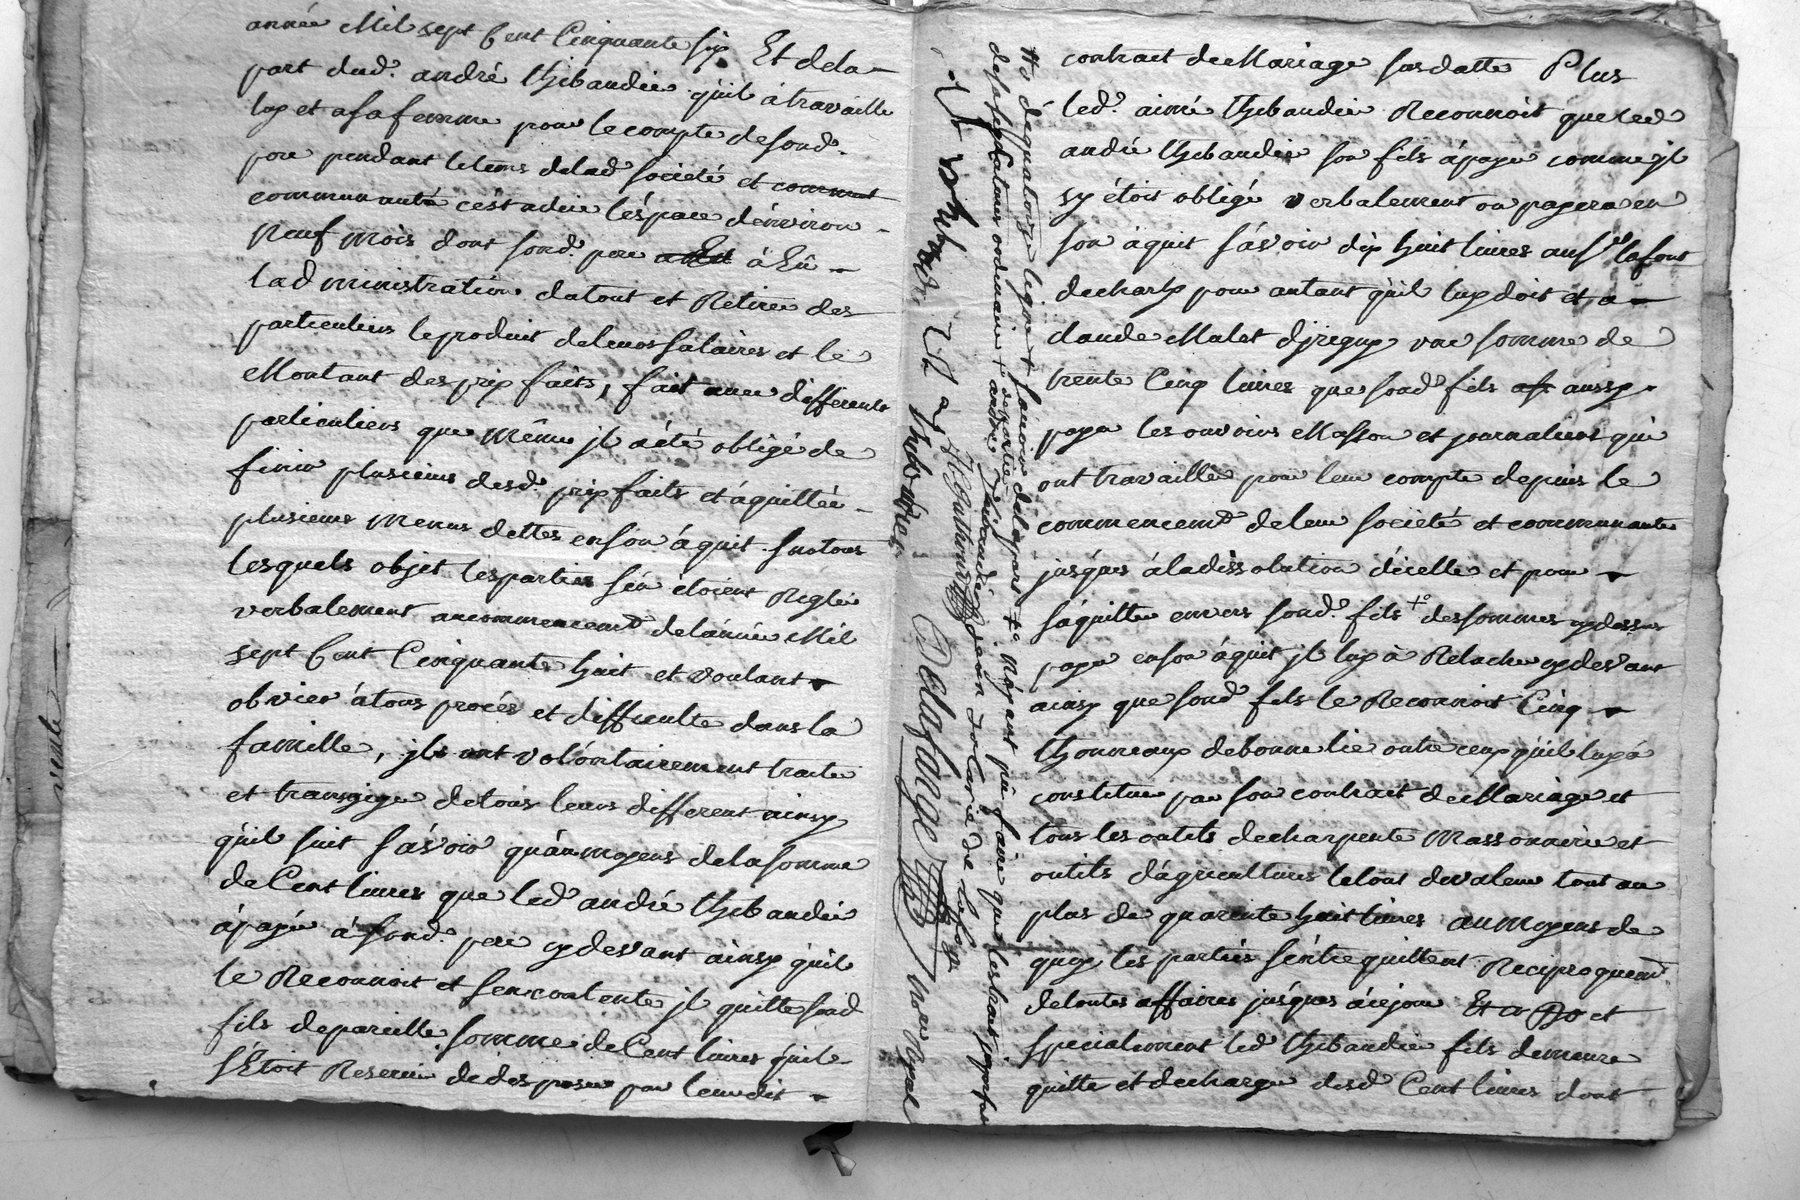 année Mil sept Cent Cinquante six Et dela
part dud. andré thibaudier quil à travaillé
luy et asa femme pour le compte de sond.
pere pendant letems delad société et comm
communauté cést adire léspace dénviron
Neuf Mois dont sond. pere à Eû
lad ministration datout et Retiré des
particuliers le produit de leurs salaires et le
Montant des prix faits, fait avec differents
particuliers que Même jl a été obligé de
finir plusieurs desd. prix faits et áquittée
plusieurs Menus dettes en son áquit. sur tous
lesquels objet les parties sén étoient Reglée
verbalement au commencemt. delánnée Mil
sept Cent Cinquante huit et voulant
obvier átous procés et difficulté dans la
famille, jls ont volóntairement traité
et transigé detous leurs different ainsy
quil suit sávoir quáumoyens de la somme
de Cent livres que led. andré thibaudier
ápayé á sond. pere cy devant ainsy quil
le Reconnoit et sen contente jl quitte sond
fils de pareille somme de Cent livres quil
s'étoit Reservée de disposer par leurdit
contract de Mariage susdatte Plus
led. aimé thibaudier Reconnoit que led
andré thibaudier son fils ápayé comme jl
sy étoit obligé verbalement ou payera en
son áquit sávoir dix huit livres au sr. lafont
decharly pour autant quil luy doit et a
claude Malet djrigny une somme de
trente Cinq livres que sond. fils aussy
payé les ouvriers Masson et journaliers qui
ont travaillé pour leur compte depuis le
commencemt. de leur société et communauté
jusques á la dissolution dícelle et pour
sáquitter envers sond. fils +° des sommes cy dessus
payé en son áquit jl luy à Relaché cy devant
ainsy que sond. fils le Reconnoit Cinq
thonneaux de bonne lie outre ceux quil luy à
constitué par son contract de Mariage et
tous les outils de charpente Massonnerie et
outils dágriculture le tout de valeur tout au
plus de quarente huit livres au Moyens de
quoy les parties séntrequittent Reciproquemt.
de toutes affaires jusques á ce jour et
specialement led. thibaudier fils demeure
quitte et decharge desd. Cent livres dont
de quatorze lignes
Delaflage
No. Royal